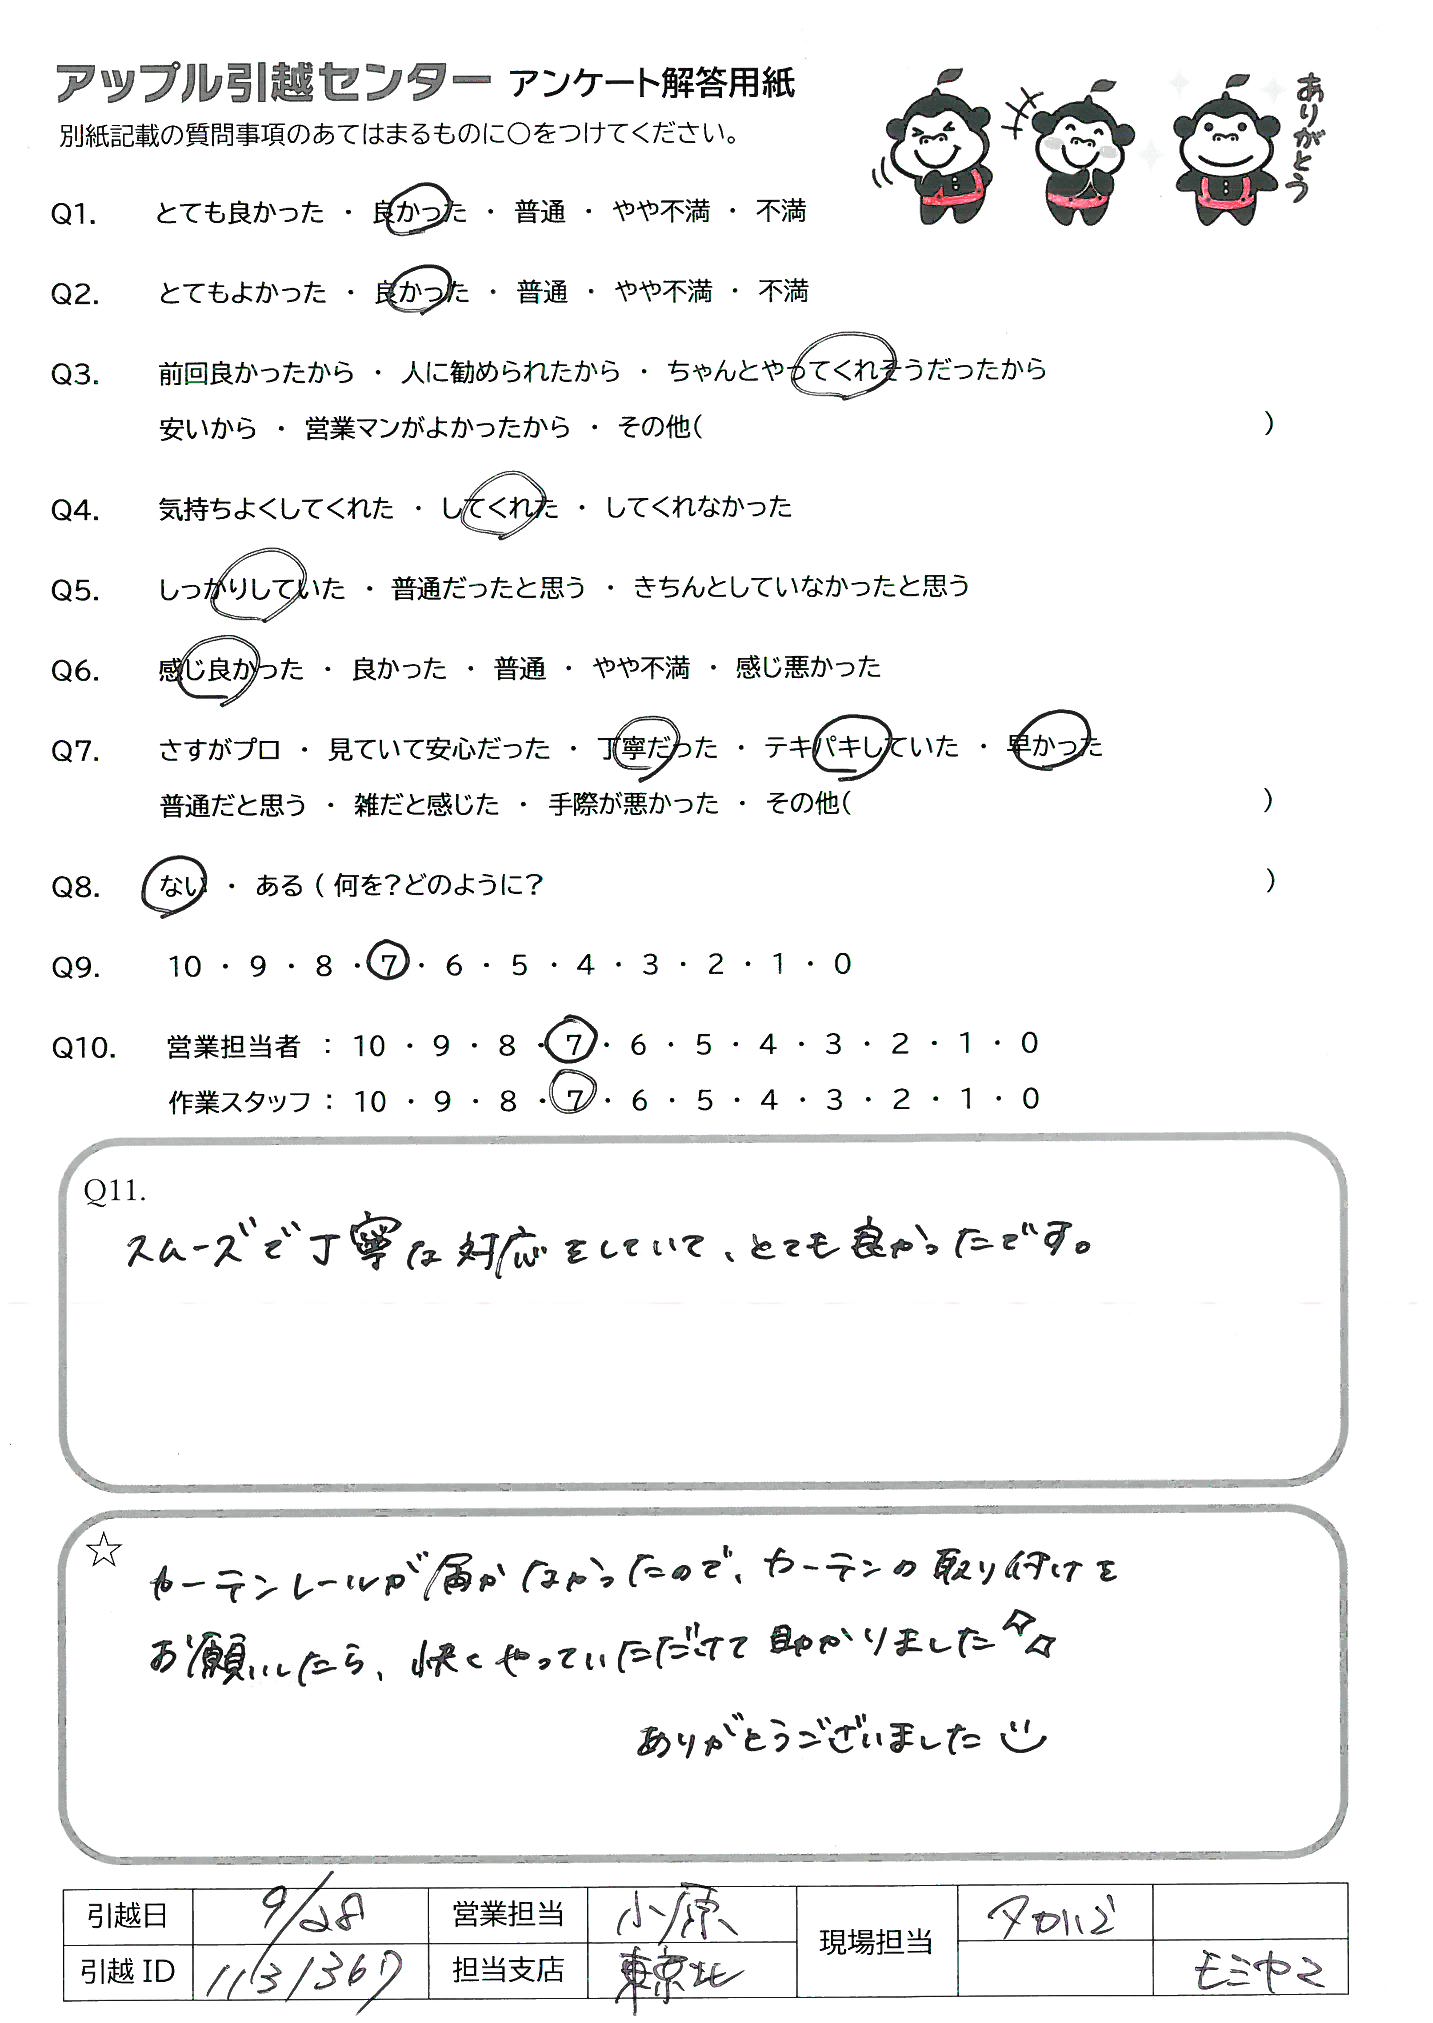 アップル引越センター アンケート解答用紙
別紙記載の質問事項のあてはまるものに○をつけてください。
ありがとう
Q1. とても良かった ・ 良かった ・ 普通 ・ やや不満 ・ 不満
Q2. とてもよかった ・ 良かった ・ 普通 ・ やや不満 ・ 不満
Q3. 前回良かったから ・ 人に勧められたから ・ ちゃんとやってくれそうだったから
安いから ・ 営業マンがよかったから ・ その他( )
Q4. 気持ちよくしてくれた ・ してくれた ・ してくれなかった
Q5. しっかりしていた ・ 普通だったと思う ・ きちんとしていなかったと思う
Q6. 感じ良かった ・ 良かった ・ 普通 ・ やや不満 ・ 感じ悪かった
Q7. さすがプロ ・ 見ていて安心だった ・ 丁寧だった ・ テキパキしていた ・ 早かった
普通だと思う ・ 雑だと感じた ・ 手際が悪かった ・ その他( )
Q8. ない ・ ある ( 何を?どのように? )
Q9. 10 ・ 9 ・ 8 ・ 7 ・ 6 ・ 5 ・ 4 ・ 3 ・ 2 ・ 1 ・ 0
Q10. 営業担当者 : 10 ・ 9 ・ 8 ・ 7 ・ 6 ・ 5 ・ 4 ・ 3 ・ 2 ・ 1 ・ 0
作業スタッフ : 10 ・ 9 ・ 8 ・ 7 ・ 6 ・ 5 ・ 4 ・ 3 ・ 2 ・ 1 ・ 0
Q11.
スムーズで丁寧な対応をしていて、とても良かったです。
☆
カーテンレールが届かなかったので、カーテンの取り付けを
お願いしたら、快くやっていただけて助かりました
ありがとうございました
引越日 9/28 営業担当 小原 現場担当
引越ID 1131367 担当支店 東京北 モミヤマ